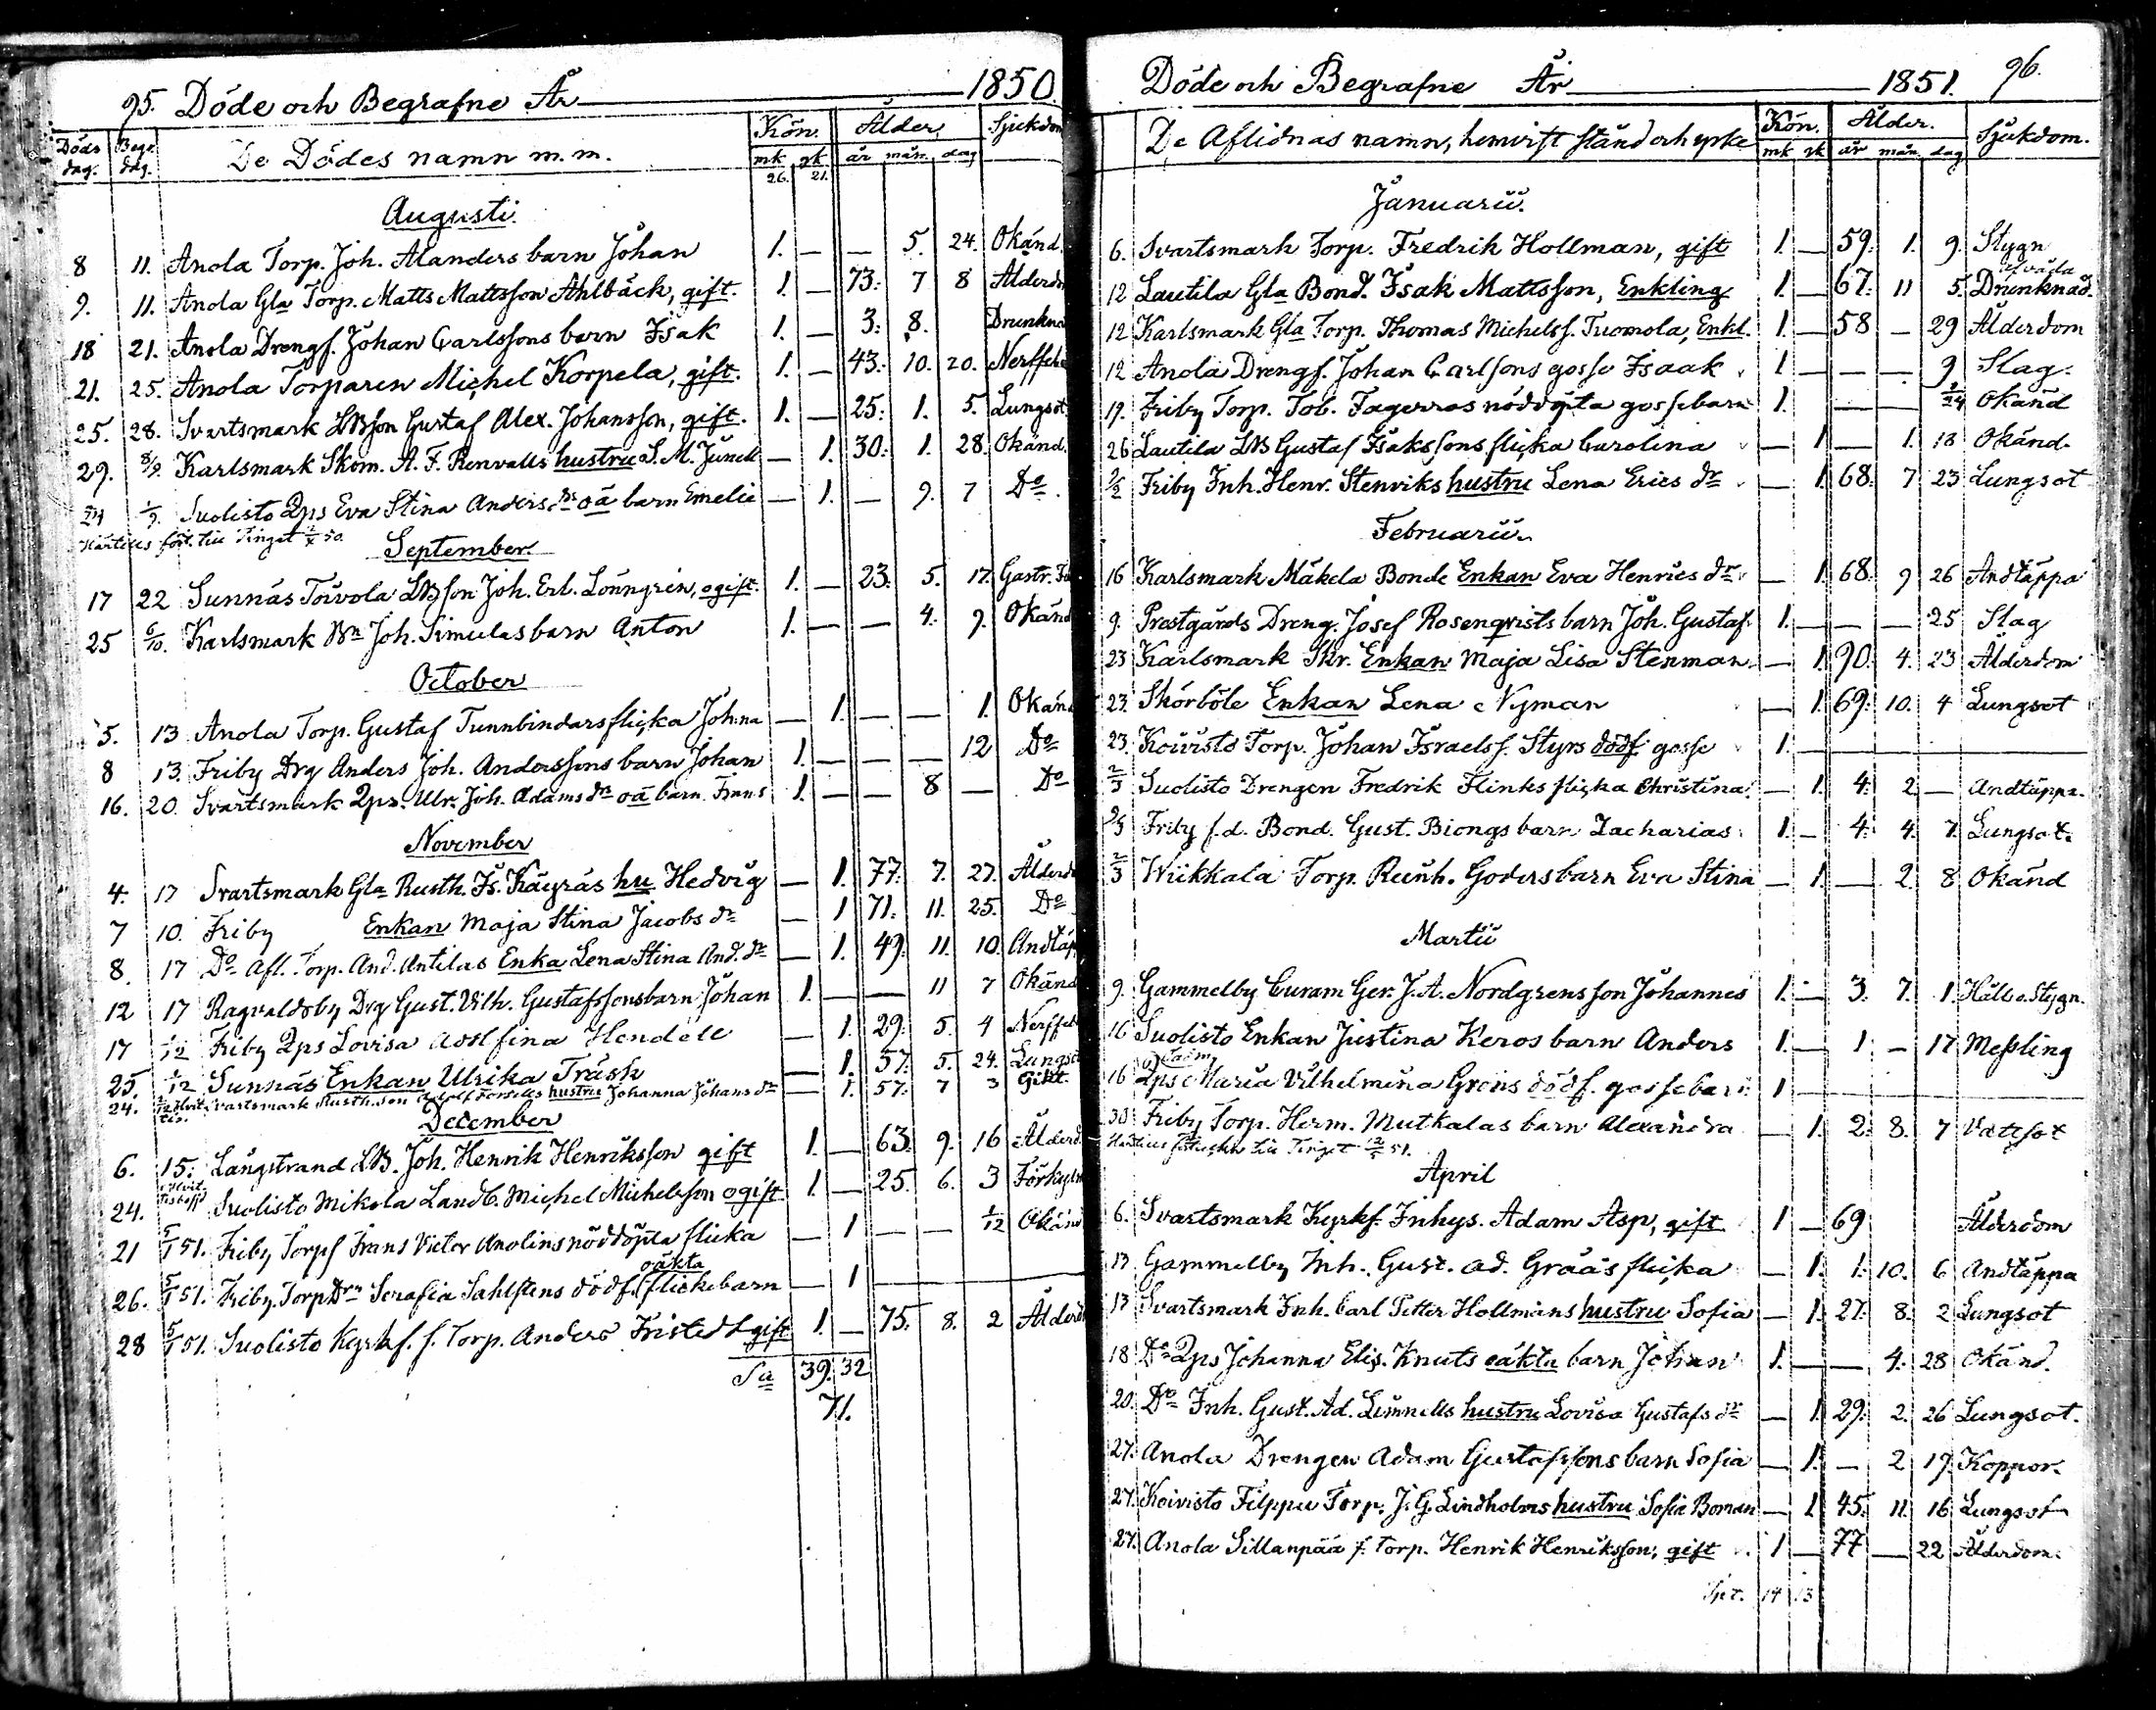 95. Döde och Begrafne År 1850
Döds dag. Begr. dag. De Dödes namn m. m. Kön. mk qk Ålder år mån. dag Sjukdom
26. 21.
Augusti.
8 11. Anola Torp. Joh. Alanders barn Johan 1. — — 5. 24. Okänd.
9. 11. Anola Gla Torp. Matts Mattsson Ahlbäck, gift. 1. — 73. 7 8 Ålderdo
18 21. Anola Drengs. Johan Carlssons barn Isak 1. — 3. 8. Drunkna
21. 25. Anola Torparen Michel Korpela, gift. 1. — 43. 10. 20. Nerffeb
25. 28. Svartsmark LBson Gustaf Alex. Johansson, gift. 1. — 25. 1. 5. Lungsot
29. 8/9. Karlsmark Skom. A. F. Renvalls hustru S. M. Junell — 1. 30. 1. 28. Okänd.
24 1/9. Suolisto Qps Eva Stina Anders dr oä barn Emelie — 1. — 9. 7 Do.
Härtills fört. till Tinget 50.
September.
17 22 Sunnäs Toivola LBson Joh. Erl. Lönngren, ogift. 1. — 23. 5. 17. Gastr. F
25 6/10. Karlsmark Bn Joh. Simulas barn Anton 1. — — 4. 9. Okänd
October
5. 13 Anola Torp. Gustaf Tunnbindars flicka Joh:na — 1. — — 1. Okänd
8 13. Friby Drg Anders Joh. Anderssons barn Johan 1. — — — 12 Do
16. 20. Svartsmark Qps. Ulr. Joh. Adams dr oä barn Frans 1. — — 8 — Do
November
4. 17 Svartsmark Gla Rusth. Is. Käyräs hu Hedvig — 1. 77. 7. 27. Ålderd
7 10. Friby Enkan Maja Stina Jacobs dr — 1 71. 11. 25. Do
8. 17 Do Afl. Torp. And. Antilas Enka Lena Stina And. dr — 1. 49. 11. 10. Andtäp
12 17 Ragvaldsby Drg Gust. Vilh. Gustafssons barn Johan 1. — — 11 7 Okänd
17 1/12 Friby Qps Lovisa Adolfina Hendell — 1. 29. 5. 4 Nerffeb
25. 1/12 Sunnäs Enkan Ulrika Träsk — 1. 57. 5. 24. Lungsot
24. Svartsmark Rusth. son Adolf Forsells hustru Johanna Johans dr — 1. 57. 7 3 Gikt.
December
6. 15. Långstrand LB. Joh. Henrik Henriksson gift 1. — 63. 9. 16 Ålderd.
24. Suolisto Mikola Landb. Michel Michelsson ogift 1. — 25. 6. 3 Förkyln
21 5/1 51. Friby Torps Frans Victor Anolins nöddöpta flicka — 1 — — 1/12 Okänd
26. 5/1 51. Friby. Torp Drn Serafia Sahlstens dödf. oäkta flickebarn — 1
28 5/1 51. Suolisto Kyrkf. f. Torp. Anders Fristedt gift 1. — 75. 8. 2 Ålderd
Sa 39. 32
71.
Döde och Begrafne År 1851. 96.
De Aflidnas namn, hemvist stånd och yrke Kön. mk qk Ålder. år mån dag Sjukdom.
Januarii.
6. Svartsmark Torp. Fredrik Hollman, gift 1. — 59. 1. 9. Stygn
12 Lautila Gla Bond. Isak Mattsson, Enkling 1. — 67. 11 5. af våda Drunknad.
12 Karlsmark Gla Torp. Thomas Michelss. Tuomola, Enkl. 1. — 58 — 29 Ålderdom
12 Anola Drengs. Johan Carlsons gosse Isaak 1 — — — 9 Slag.
19. Friby Torp. Tob. Fagerros nöddöpta gossebarn 1. — — 5/24 Okänd
26 Lautila LB Gustaf Isakssons flicka Carolina — 1 — 1. 18 Okänd.
2/2 Friby Inh. Henr. Stenviks hustru Lena Erics dr — 1. 68. 7 23 Lungsot
Februarii.
16 Karlsmark Mäkelä Bonde Enkan Eva Henrics dr — 1. 68. 9 26 Andtäppa
9. Prestgårds Dreng. Josef Rosenqvists barn Joh. Gustaf 1. — — — 25 Slag
23 Karlsmark Skr. Enkan Maja Lisa Stenman — 1. 90. 4. 23 Ålderdom
23. Skörböle Enkan Lena Nyman — 1. 69. 10. 4 Lungsot
23. Koivisto Torp. Johan Israelss. Styrs dödf. gosse 1. —
2/3 Suolisto Drengen Fredrik Flinks flicka Christina — 1. 4. 2 — Andtäppa.
2/3 Friby f.d. Bond. Gust. Biongs barn Zacharias 1. — 4. 4. 7. Lungsot.
2/3 Wiikkala Torp. Reinh. Goders barn Eva Stina — 1. — 2. 8 Okänd
Martii
9. Gammelby Curam Ger. J. A. Nordgrens son Johannes 1. — 3. 7. 1. Håll o. Stygn.
16 Suolisto Enkan Justina Keros barn Anders 1. — 1 — 17 Messling
16 Qps Maria Vilhelmina Gröns dödf. gossebarn 1 —
30 Friby Torp. Herm. Mutkalas barn Alexandra — 1. 2. 8. 7 Vattsot
Härtills till Tinget 51.
April
6. Svartsmark Kyrkf. Inhys. Adam Asp, gift 1 — 69 Ålderdom
13 Gammelby Inh. Gust. Ad. Gråäs flicka — 1. 1. 10. 6 Andtäppa
13 Svartsmark Inh. Carl Petter Hollmans hustru Sofia — 1. 27. 8. 2 Lungsot
18 Do Qps Johanna Elis. Knuts oäkta barn Johan 1. — — 4. 28 Okänd.
20. Do Inh. Gust. Ad. Limnells hustru Lovisa Gustafs dr — 1. 29. 2. 26 Lungsot.
27. Anola Drengen Adam Gustafssons barn Sofia — 1. — 2 19. Koppor.
27. Koivisto Filppu Torp. J. G. Lindholms hustru Sofia Boman — 1. 45. 11. 16 Lungsot
27. Anola Sillanpää f. Torp. Henrik Henriksson, gift 1 — 77 — 22 Ålderdom.
14 13